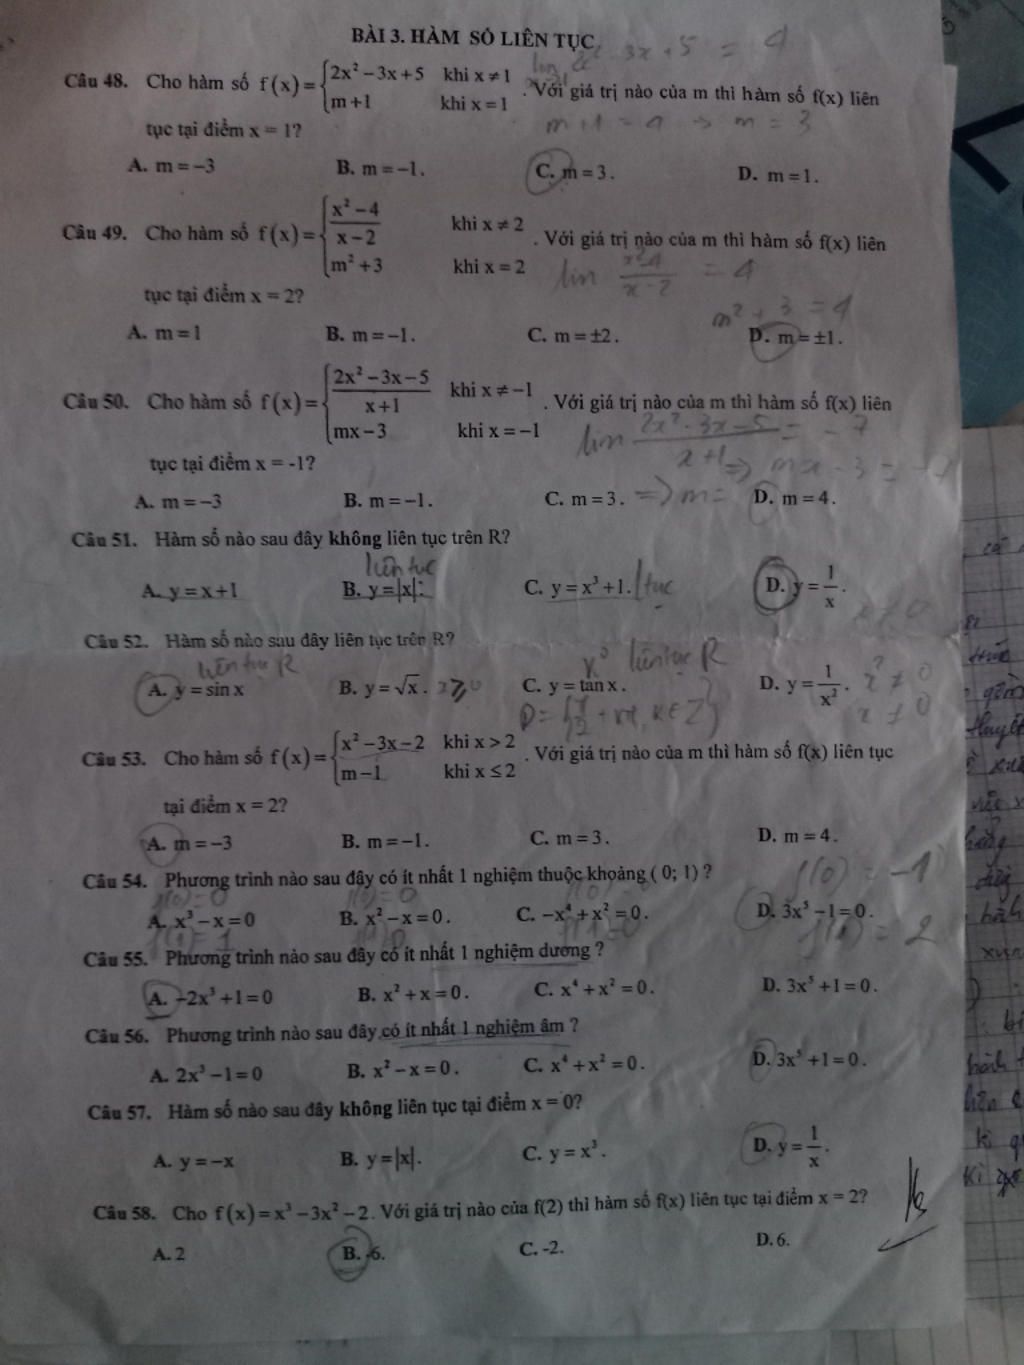 BÀI 3. HÀM SỐ LIÊN TỤC
3x + 5 = 4
Câu 48. Cho hàm số f(x) = { 2x² − 3x + 5 khi x ≠ 1
m + 1 khi x = 1 . Với giá trị nào của m thì hàm số f(x) liên
m + 1 = 4 → m = 3
tục tại điểm x = 1?
A. m = −3 B. m = −1. C. m = 3. D. m = 1.
Câu 49. Cho hàm số f(x) = { (x² − 4)/(x − 2) khi x ≠ 2
m² + 3 khi x = 2 . Với giá trị nào của m thì hàm số f(x) liên
lim (x²-4)/(x-2) = 4
tục tại điểm x = 2?
m² + 3 = 4
A. m = 1 B. m = −1. C. m = ±2. D. m = ±1.
Câu 50. Cho hàm số f(x) = { (2x² − 3x − 5)/(x + 1) khi x ≠ −1
mx − 3 khi x = −1 . Với giá trị nào của m thì hàm số f(x) liên
lim (2x² - 3x - 5)/(x+1) = -7
tục tại điểm x = -1?
⇒ mx - 3 = -7
A. m = −3 B. m = −1. C. m = 3. ⇒ m = D. m = 4.
Câu 51. Hàm số nào sau đây không liên tục trên R?
liên tục
A. y = x + 1 B. y = |x|. C. y = x³ + 1. l tục D. y = 1/x.
x ≠ 0
Câu 52. Hàm số nào sau đây liên tục trên R?
liên tục R liên tục R
A. y = sin x B. y = √x. x ⩾ 0 C. y = tan x. D. y = 1/x². x² ≠ 0
D = {π/2 + kπ, k ∈ Z} x ≠ 0
Câu 53. Cho hàm số f(x) = { x² − 3x − 2 khi x > 2
m − 1 khi x ≤ 2 . Với giá trị nào của m thì hàm số f(x) liên tục
tại điểm x = 2?
A. m = −3 B. m = −1. C. m = 3. D. m = 4.
Câu 54. Phương trình nào sau đây có ít nhất 1 nghiệm thuộc khoảng ( 0; 1) ?
f(0) = 0 f(0) = 0 f(0) = f(0) = -1
A. x³ − x = 0 B. x² − x = 0. C. −x⁴ + x² = 0. D. 3x⁵ − 1 = 0.
f(1) = 1 f(1) = 0 f(1) = 0 f(1) = 2
Câu 55. Phương trình nào sau đây có ít nhất 1 nghiệm dương ?
A. −2x³ + 1 = 0 B. x² + x = 0. C. x⁴ + x² = 0. D. 3x⁵ + 1 = 0.
Câu 56. Phương trình nào sau đây có ít nhất 1 nghiệm âm ?
A. 2x³ − 1 = 0 B. x² − x = 0. C. x⁴ + x² = 0. D. 3x⁵ + 1 = 0.
Câu 57. Hàm số nào sau đây không liên tục tại điểm x = 0?
A. y = −x B. y = |x|. C. y = x³. D. y = 1/x.
Câu 58. Cho f(x) = x³ − 3x² − 2. Với giá trị nào của f(2) thì hàm số f(x) liên tục tại điểm x = 2?
A. 2 B. -6. C. -2. D. 6.